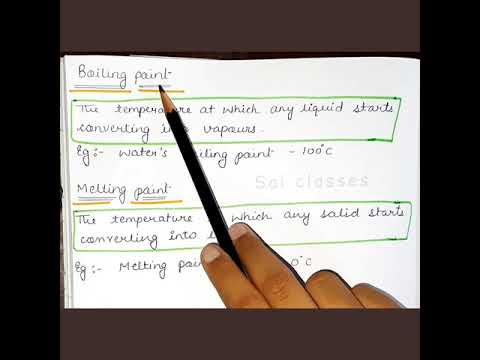 Boiling point
The temperature at which any liquid starts
converting into vapours.
Eg:- Water's boiling point - 100°C
Sai classes
Melting point
The temperature which any solid starts
converting into
Eg:- Melting 0°C